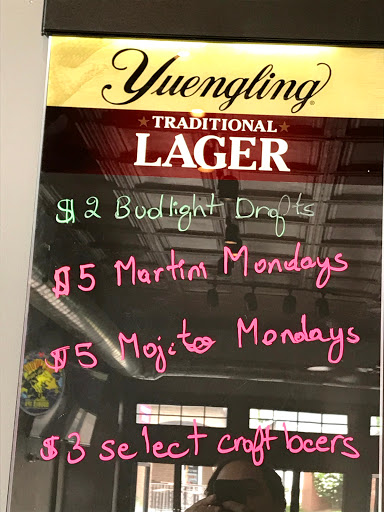 Yuengling®
TRADITIONAL
LAGER
$2 Budlight Drafts
$5 Martini Mondays
$5 Mojito Mondays
$3 select craft beers